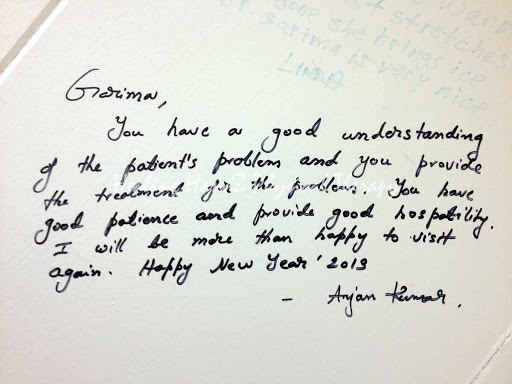 WARM
stretches
done she brings ice
Garima is very nice
LINDA
Garima,
You have a good understanding
of the patient's problem and you provide
the treatment for the problem. You have
good patience and provide good hospatility.
I will be more than happy to visit
again. Happy New Year' 2013
- Anjan Kumar.